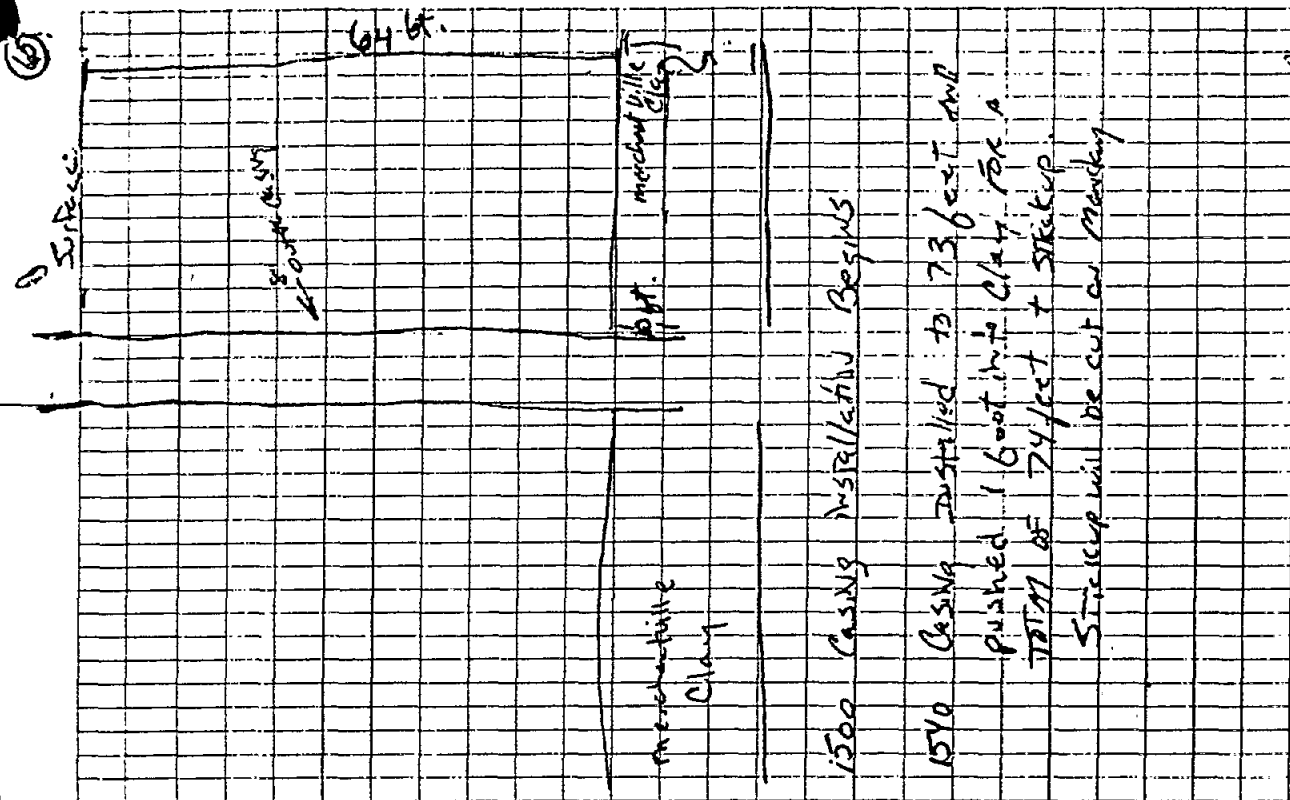 6
Surface
64 ft.
8" Outer Casing
merchantville
Clay
10 ft.
merchantville
Clay
1500 Casing Installation Begins
1540 Casing Installed to 73 feet and
pushed 1 foot into Clay for a
TOTAL OF 74 feet + Stickup.
Stickup will be cut on Monday